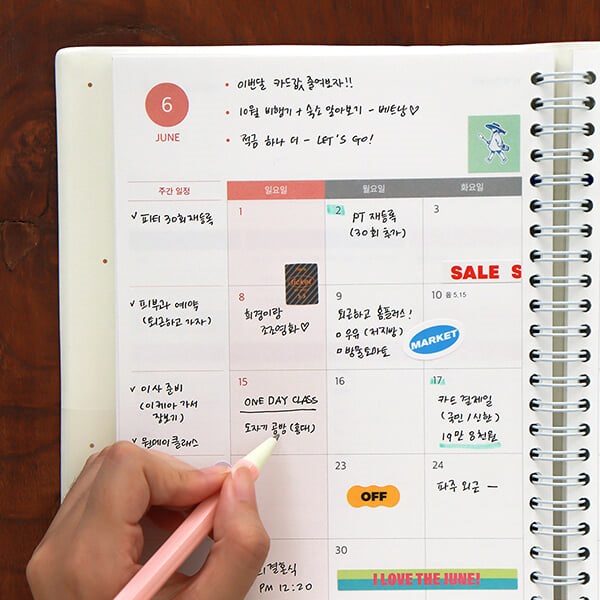 6
JUNE
• 이번달 카드값 줄여보자!!
• 10월 비행기 + 숙소 알아보기 - 베트남♡
• 적금 하나 더 - LET'S GO!
주간 일정
일요일
월요일
화요일
✓ 피티 30회 재등록
1
2
PT 재등록
(30회 추가)
3
SALE S
✓ 피부과 예약
(퇴근하고 가자)
8
희경이랑
조조영화♡
9
퇴근하고 홈플러스!
□ 우유 (저지방)
□ 방울토마토
10 음 5.15
MARKET
✓ 이사 준비
(이케아 가서
장보기)
✓ 원데이클래스
15
ONE DAY CLASS
도자기 공방 (홍대)
16
17
카드 결제일
(국민/신한)
19만 8천원
23
OFF
24
파주 외근 —
결혼식
PM 12:20
30
I LOVE THE JUNE!